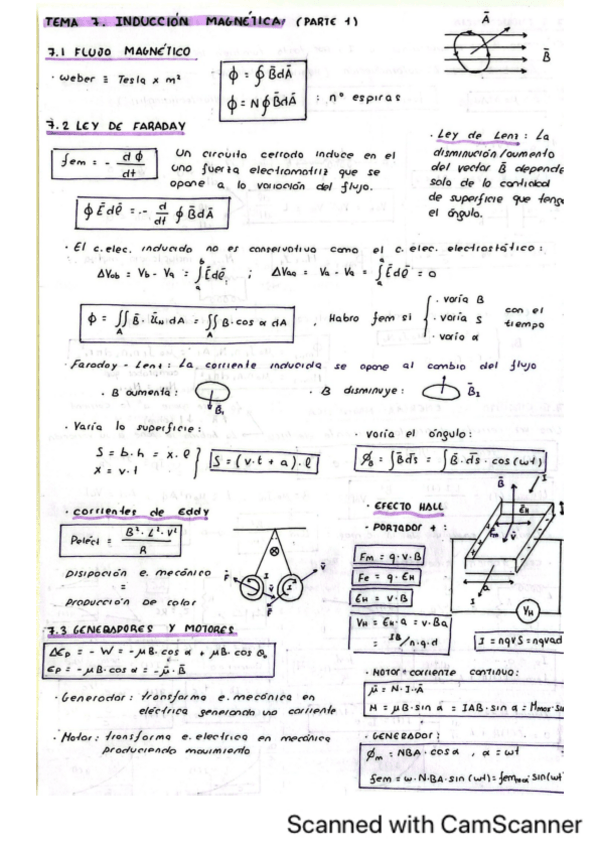 TEMA 7. INDUCCIÓN MAGNÉTICA: (PARTE 1)
Ā
B̄
7.1 FLUJO MAGNÉTICO
· weber ≡ Tesla x m²
ϕ = ∮ B̄dĀ
ϕ = N∮ B̄dĀ : nº espiras
7.2 LEY DE FARADAY
fem = - dϕ/dt
Un circuito cerrado induce en el
una fuerza electromotriz que se
opone a la variación del flujo.
∮ Ēdℓ̄ = - d/dt ∮ B̄dĀ
· Ley de Lenz: La
disminución/aumento
del vector B̄ depende
solo de la cantidad
de superficie que teng
el ángulo.
· El c.elec. inducido no es conservativo como el c. elec. electrostático:
ΔVab = Vb - Va = ∫ₐᵇ Ēdℓ̄ ; ΔVaa = Va - Va = ∫ₐᵃ Ēdℓ̄ = 0
ϕ = ∬_A B̄ · ūN dA = ∬_A B·cos α dA , Habrá fem si
· varía B
· varía S
· varía α
con el
tiempo
· Faraday - Lenz: La corriente inducida se opone al cambio del flujo
· B aumenta:
B̄₁
· B disminuye:
B̄₁
· Varía la superficie:
S = b·h = x·ℓ
x = v·t
S = (v·t + a)·ℓ
· varía el ángulo:
= ∫B̄ds̄ = ∫B̄·ds̄·cos(ωt)
· corrientes de Eddy
= B²·L²·v²/R
DISIPACIÓN E. MECÁNICA
=
PRODUCCIÓN DE CALOR
· EFECTO HALL
· PORTADOR + :
Fm = q·v·B
Fe = q·EH
EH = v·B
VH = EH·a = v·Ba
= IB/n·q·d
VH
I = nqvS = nqvad
7.3 GENERADORES Y MOTORES
ΔEp = - W = -μB·cos α + μB·cos θ₀
Ep = -μB·cos α = -μ̄·B̄
· Generador: transforma e. mecánica en
eléctrica generando una corriente
· Motor: transforma e. electrica en mecánica
produciendo movimiento
· MOTOR corriente continua:
μ̄ = N·I·Ā
M = μB·sin α = IAB·sin α =
· GENERADOR:
ϕm = NBA·cosα , α = ωt
fem = ω·N·BA·sin(ωt) = femmax sin(ωt
Scanned with CamScanner